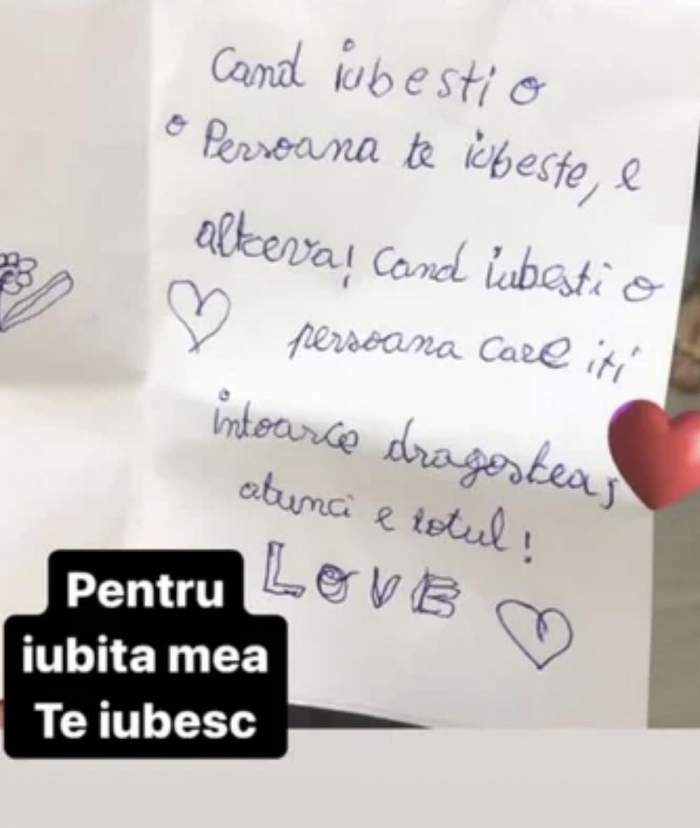 Cand iubesti o
o Persoana te iubeste, e
altceva! Cand iubesti o
persoana care iti
intoarce dragostea,
atunci e totul!
LOVE
Pentru
iubita mea
Te iubesc